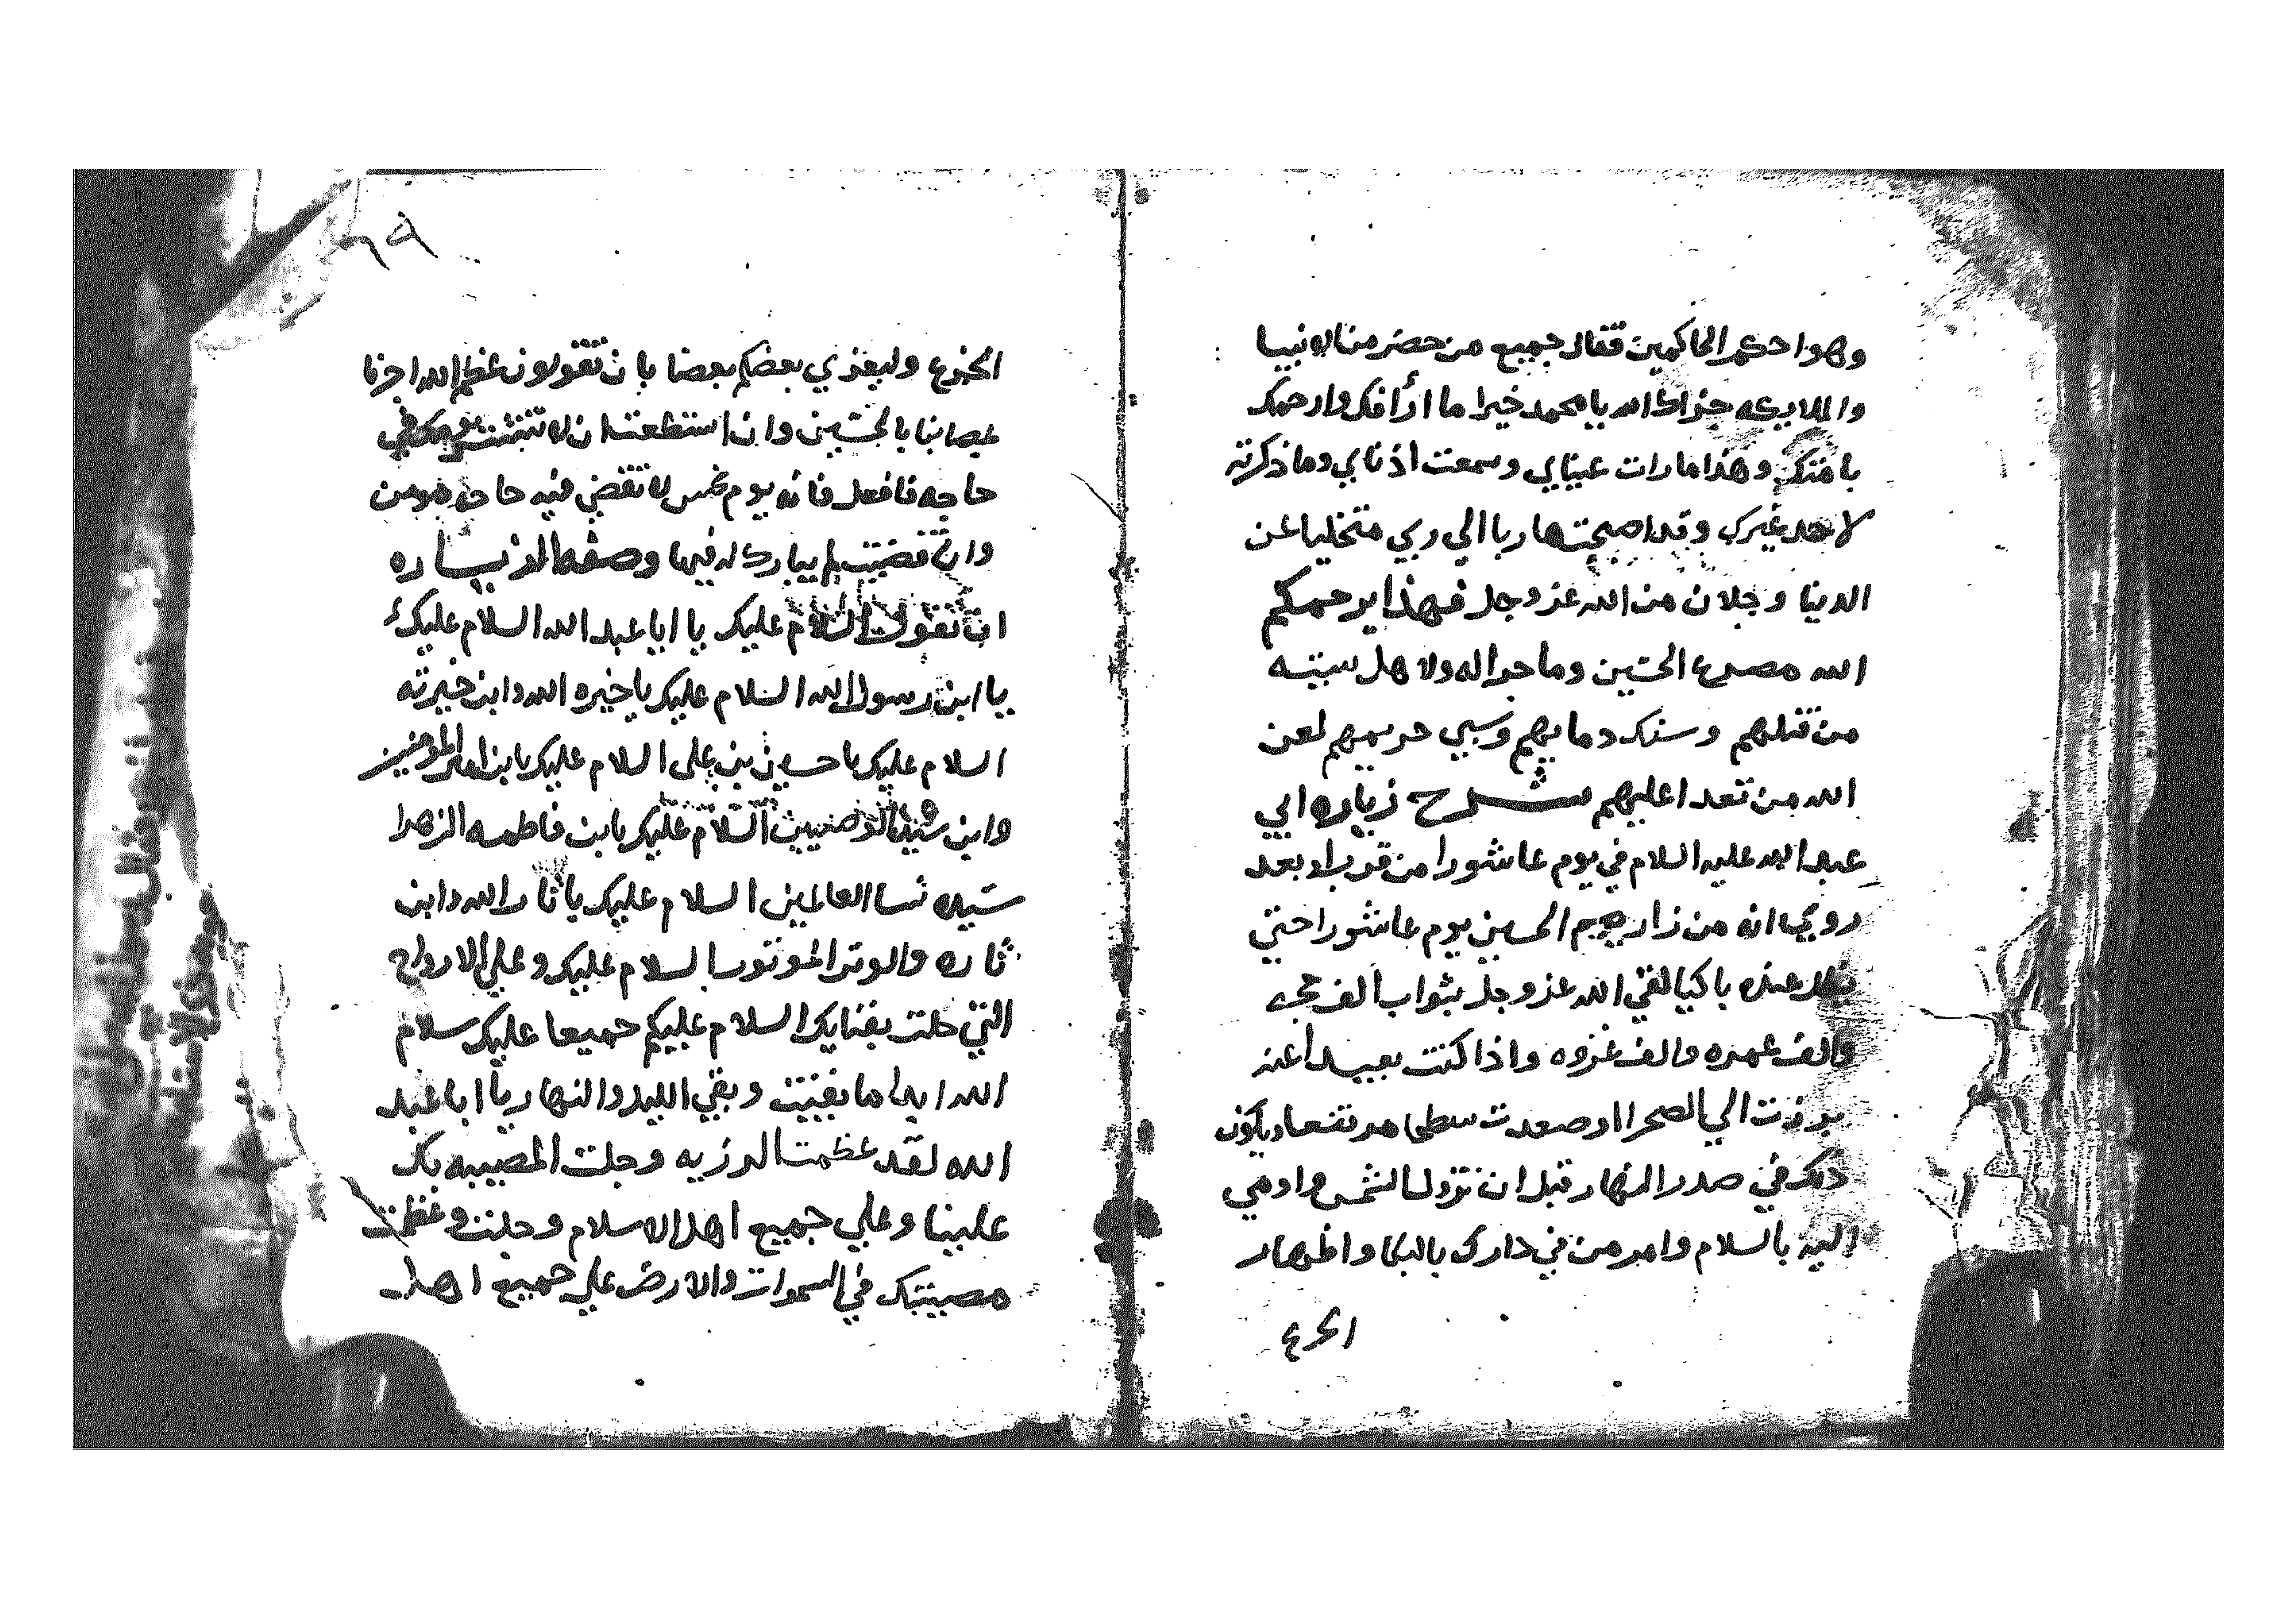 وهو احكم الحاكمين فقال جميع من حضر من الانبيا
والملايكه جزاك الله يا محمد خيرا ما ارأفك وارحمك
بامتك وهذا ما رات عيناي وسمعت اذناي وما ذكرته
لاحد غيرك وقد اصبحت هاربا الي ربي متخليا عن
الدنيا وجلان من الله عز وجل فهذا يرحمكم
الله مصرع الحسين وما جرا له ولاهل سبيه
من قتلهم وسفك دمايهم وسبي حريمهم لعن
الله من تعدا عليهم شرح زياره ابي
عبد الله عليه السلام في يوم عاشورا من قرب او بعد
روي انه من زار الحسين يوم عاشورا حتي
يظل عنده باكيا لقي الله عز وجل بثواب الف حجه
والف عمره والف غزوه واذا كنت بعيدا عنه
برزت الي الصحرا او صعدت سطحا مرتفعا ويكون
ذلك في صدر النهار قبل ان تزول الشمس واومي
اليه بالسلام وامر من في دارك بالبكا واظهار
الجزع
٦٩
الجزع وليعزي بعضكم بعضا بان تقولون عظم الله اجرنا
بمصابنا بالحسين وان استطعت ان لا تنتشر يومك في
حاجه فافعل فانه يوم نحس لا تقضي فيه حاجه مومن
وان قضيت لم يبارك له فيها وصفه الزياره
ان تقول السلام عليك يا ابا عبد الله السلام عليك
يا ابن رسول الله السلام عليك يا خيره الله وابن خيرته
السلام عليك يا حسين بن علي السلام عليك يا بن امير المومنين
وابن سيد الوصيين السلام عليك يا بن فاطمه الزهرا
سيده نسا العالمين السلام عليك يا ثار الله وابن
ثاره والوتر الموتور السلام عليك وعلي الارواح
التي حلت بفنايك السلام عليكم جميعا عليك سلام
الله ابدا ما بقيت وبقي الليل والنهار يا ابا عبد
الله لقد عظمت الرزيه وجلت المصيبه بك
علينا وعلي جميع اهل الاسلام وجلت وعظمت
مصيبتك في السموات والارض علي جميع اهل